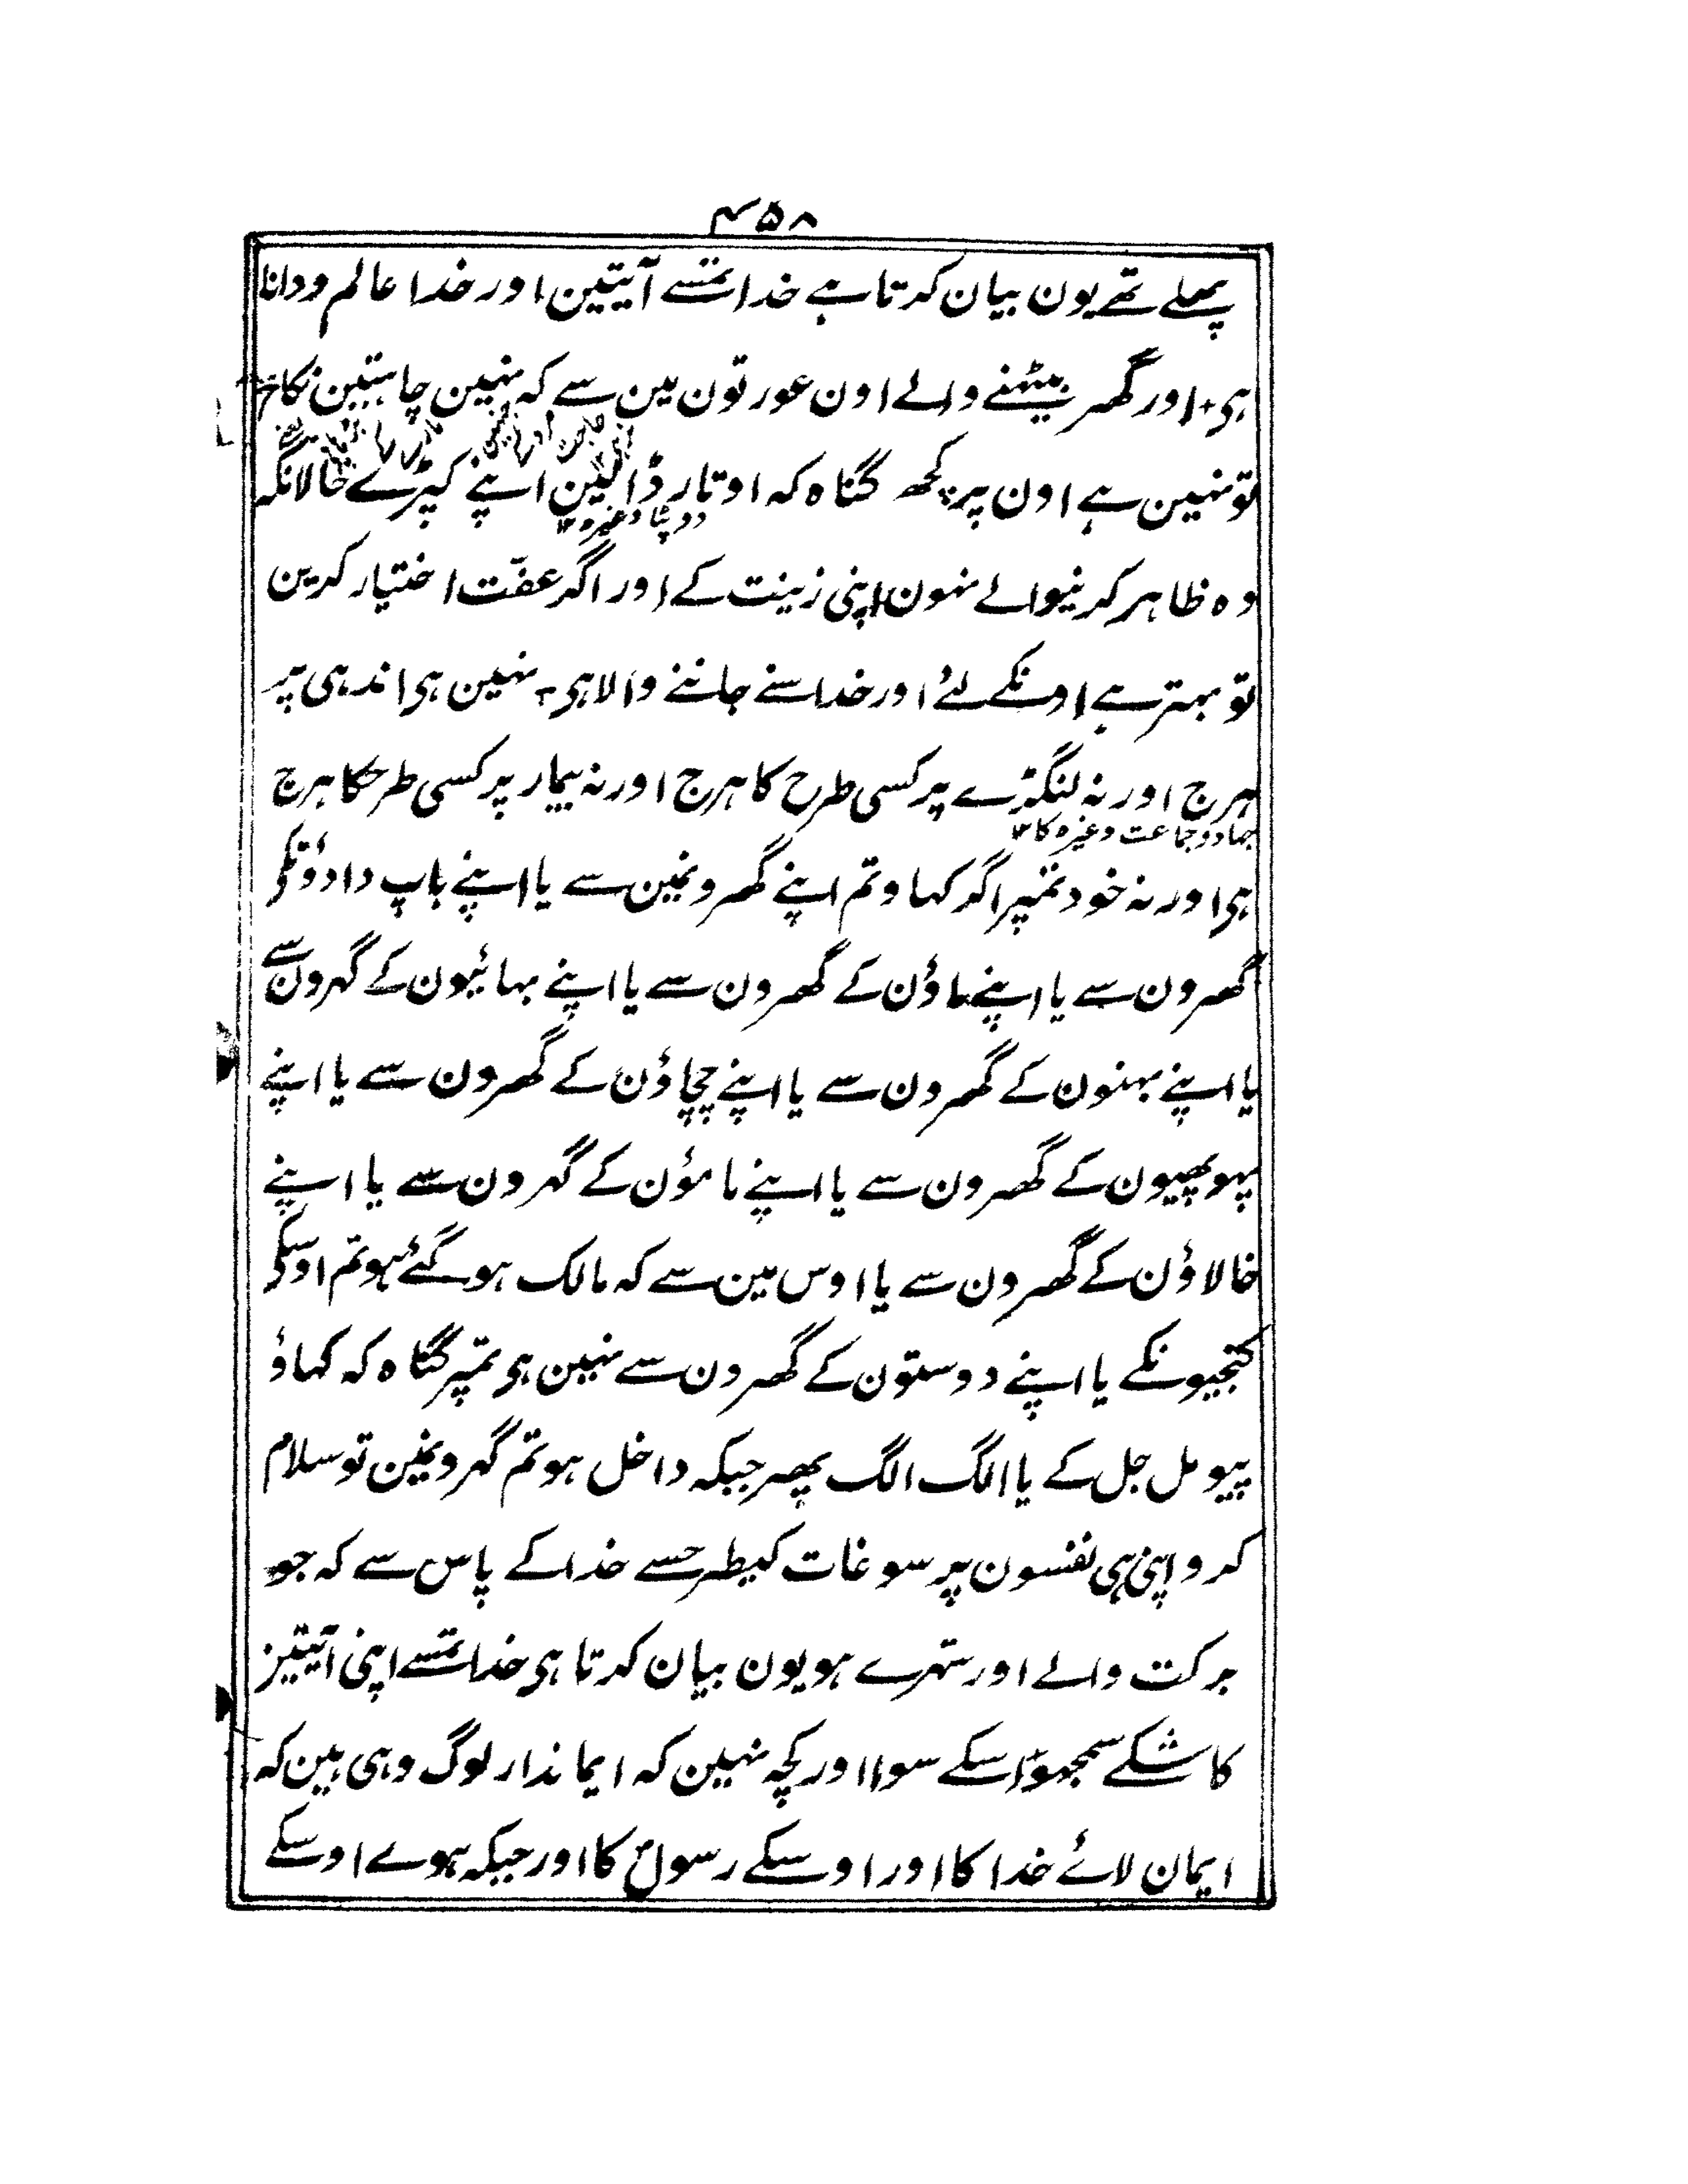 ۴۵۸
پہلے تھے یون بیان کرتا ہے خدا تمسے آیتین اور خدا عالم و دانا
ہی اور گھر بیٹھنے والے اون عورتون مین سے کہ نہین چاہتین نکاح
تو نہین ہے اون پر کچھ گناہ کہ اوتار ڈالین اپنے کپڑے حالانکہ
دوپٹا وغیرہ ۱۲
وہ ظاہر کرنیوالے نہون اپنی زینت کے اور اگر عفّت اختیار کرین
تو بہتر ہے اونکے لئے اور خدا سننے جاننے والا ہی نہین ہی اندہی پر
ہرج اور نہ لنگڑے پر کسی طرح کا ہرج اور نہ بیمار پر کسی طرحکا ہرج
جہاد و جماعت وغیرہ کا ۱۲
ہی اور نہ خود تمپر اگر کہاو تم اپنے گھرونمین سے یا اپنے باپ دادؤنکی
گھرون سے یا اپنے ماؤن کے گھرون سے یا اپنے بہائیون کے گہرون سے
یا اپنے بہنون کے گھرون سے یا اپنے چچاؤن کے گھرون سے یا اپنے
پہوپھیون کے گھرون سے یا اپنے ماموٴن کے گہرون سے یا اپنے
خالاؤن کے گھرون سے یا اوس مین سے کہ مالک ہو گئے ہو تم اوسکی
کنجیونکے یا اپنے دوستون کے گھرون سے نہین ہی تمپر گناہ کہ کہاؤ
پیو مل جل کے یا الگ الگ پھر جبکہ داخل ہو تم گہرونمین تو سلام
کرو اپنی ہی نفسون پر سوغات کیطرحسے خدا کے پاس سے کہ جو
برکت والے اور ستہرے ہو یون بیان کرتا ہی خدا تمسے اپنی آیتین
کاشکے سمجھو اسکے سوا اور کچہ نہین کہ ایماندار لوگ وہی ہین کہ
ایمان لائے خدا کا اور اوسکے رسولؐ کا اور جبکہ ہوے اوسکے